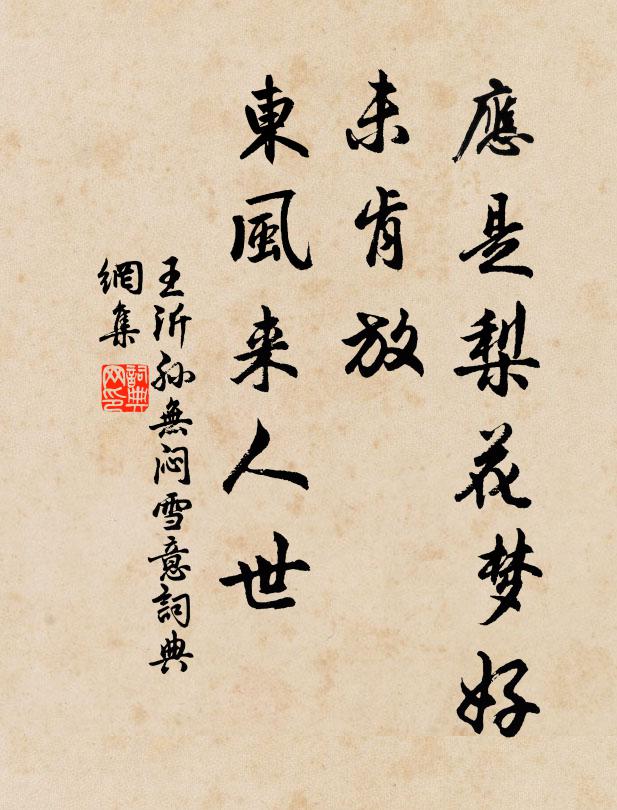 應是梨花梦好
未肯放
東風来人世
王沂孫無悶雪意詞典
網集
詞典
网印